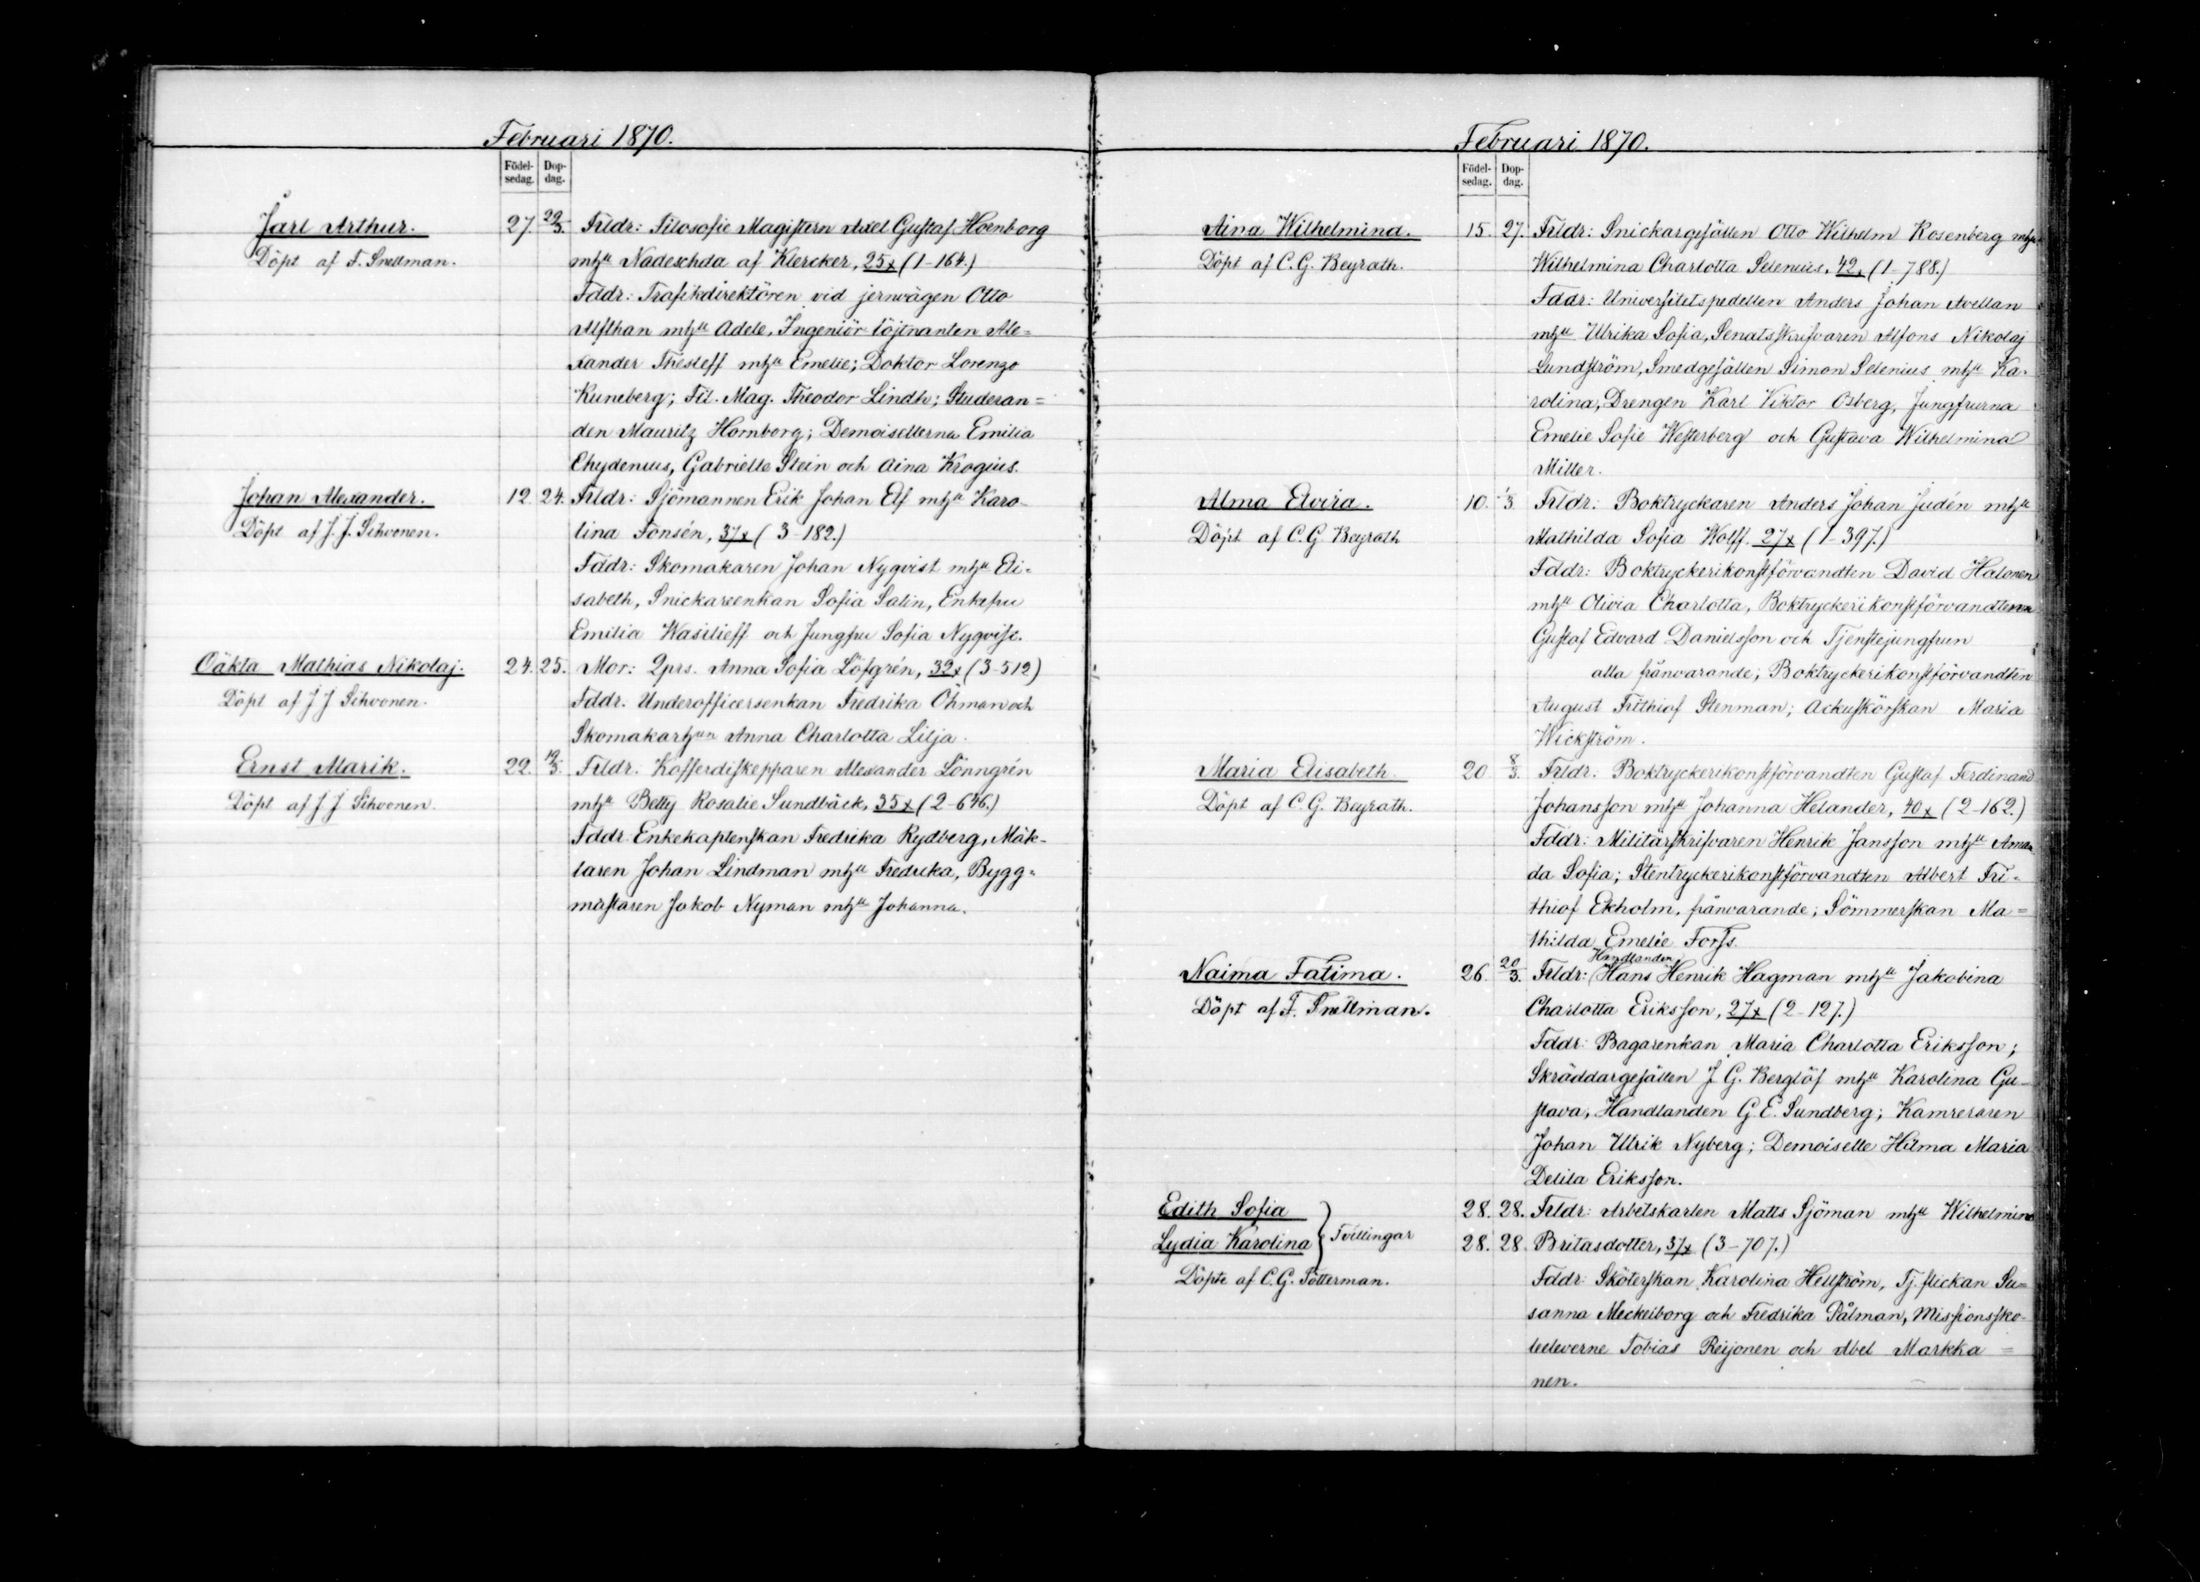 Februari 1870.
Födel-
sedag.
Dop-
dag.
Jarl Arthur.
Döpt af F. Snellman.
27. 22/3. Frldr: Filosofie Magistern Axel Gustaf Hornborg
mhu Nadeschda af Klercker, 25x (1-164.)
Fddr: Trafikdirektören vid jernvägen Otto
Alfthan mhu Adele, Ingeniör löjtnanten Ale=
xander Thesleff mhu Emelie; Doktor Lorenzo
Runeberg; Fil. Mag. Theodor Lindh; Studeran=
den Mauritz Hornborg; Demoisellerna Emilia
Chydenius, Gabrielle Stein och Aina Krogius.
Johan Alexander.
Döpt af J. J. Sihvonen.
12. 24. Frldr: Sjömannen Erik Johan Elf mhu Karo-
lina Fonsén, 37x (3-182.)
Fddr: Skomakaren Johan Nyqvist mhu Eli=
sabeth, Snickareenkan Sofia Salin, Enkefru
Emilia Wasilieff och Jungfru Sofia Nyqvist.
Oäkta Mathias Nikolaj.
Döpt af J J Sihvonen.
24. 25. Mor: Qprs. Anna Sofia Löfgrén, 32x (3-512)
Fddr. Underofficersenkan Fredrika Öhman och
Skomakarhun Anna Charlotta Lilja.
Ernst Marik.
Döpt af J J Sihvonen.
22. 12/3. Frldr. Kofferdiskepparen Alexander Lönngrén
mhu Betty Rosalie Sundbäck, 35x (2-646.)
Fddr: Enkekaptenskan Fredrika Rydberg, Mäk-
laren Johan Lindman mhu Fredrika, Bygg=
mästaren Jakob Nyman mhu Johanna.
Februari 1870.
Födel-
sedag.
Dop-
dag.
Aina Wilhelmina.
Döpt af C. G. Beyrath.
15. 27. Frldr: Snickargesällen Otto Wilhelm Rosenberg mhu
Wilhelmina Charlotta Selenius, 42x (1-788.)
Fddr: Universitetspedellen Anders Johan Avellan
mhu Ulrika Sofia, Senatsskrifvaren Alfons Nikolaj
Lundström, Smedgesällen Simon Selenius mhu Ka-
rolina, Drengen Karl Viktor Osberg, Jungfrurna
Emelie Sofie Westerberg och Gustava Wilhelmina
Miller.
Alma Elvira.
Döpt af C. G. Beyrath
10. 1/3. Frldr: Boktryckaren Anders Johan Judén mhu
Mathilda Sofia Wolff. 27x (1-397.)
Fddr: Boktryckerikonstförvandten David Halonen
mhu Olivia Charlotta, Boktryckerikonstförvandtena
Gustaf Edvard Danielsson och Tjenstejungfrun
alla frånvarande; Boktryckerikonstförvandten
August Frithiof Stenman; Ackuskörskan Maria
Wickström.
Maria Elisabeth.
Döpt af C. G. Beyrath.
20 8/3. Frldr: Boktryckerikonstförvandten Gustaf Ferdinand
Johansson mhu Johanna Helander, 40x (2-162.)
Fddr: Militärskrifvaren Henrik Jansson mhu Aman
da Sofia; Stentryckerikonstförvandten Albert Fri=
thiof Ekholm, frånvarande; Sömmerskan Ma=
thilda Emelie Forss.
Naima Fatima.
Döpt af F. Snellman.
Handlanden
26. 20/3. Frldr: Hans Henrik Hagman mhu Jakobina
Charlotta Eriksson, 27x (2-127.)
Fddr: Bagarenkan Maria Charlotta Eriksson;
Skräddargesällen J G. Berglöf mhu Karolina Gu-
stava, Handlanden G. E. Sundberg; Kamreraren
Johan Ulrik Nyberg; Demoiselle Hilma Maria
Delila Eriksson.
Edith Sofia
Lydia Karolina } Tvillingar
Döpte af C. G. Totterman.
28. 28. Frldr: Arbetskarlen Matts Sjöman mhu Wilhelmina
28. 28. Britasdotter, 37x (3-707.)
Fddr: Sköterskan Karolina Hellström, Tj. flickan Su=
sanna Meckelborg och Fredrika Pålman, Missionssko-
leeleverne Tobias Reijonen och Abel Markka=
nen.